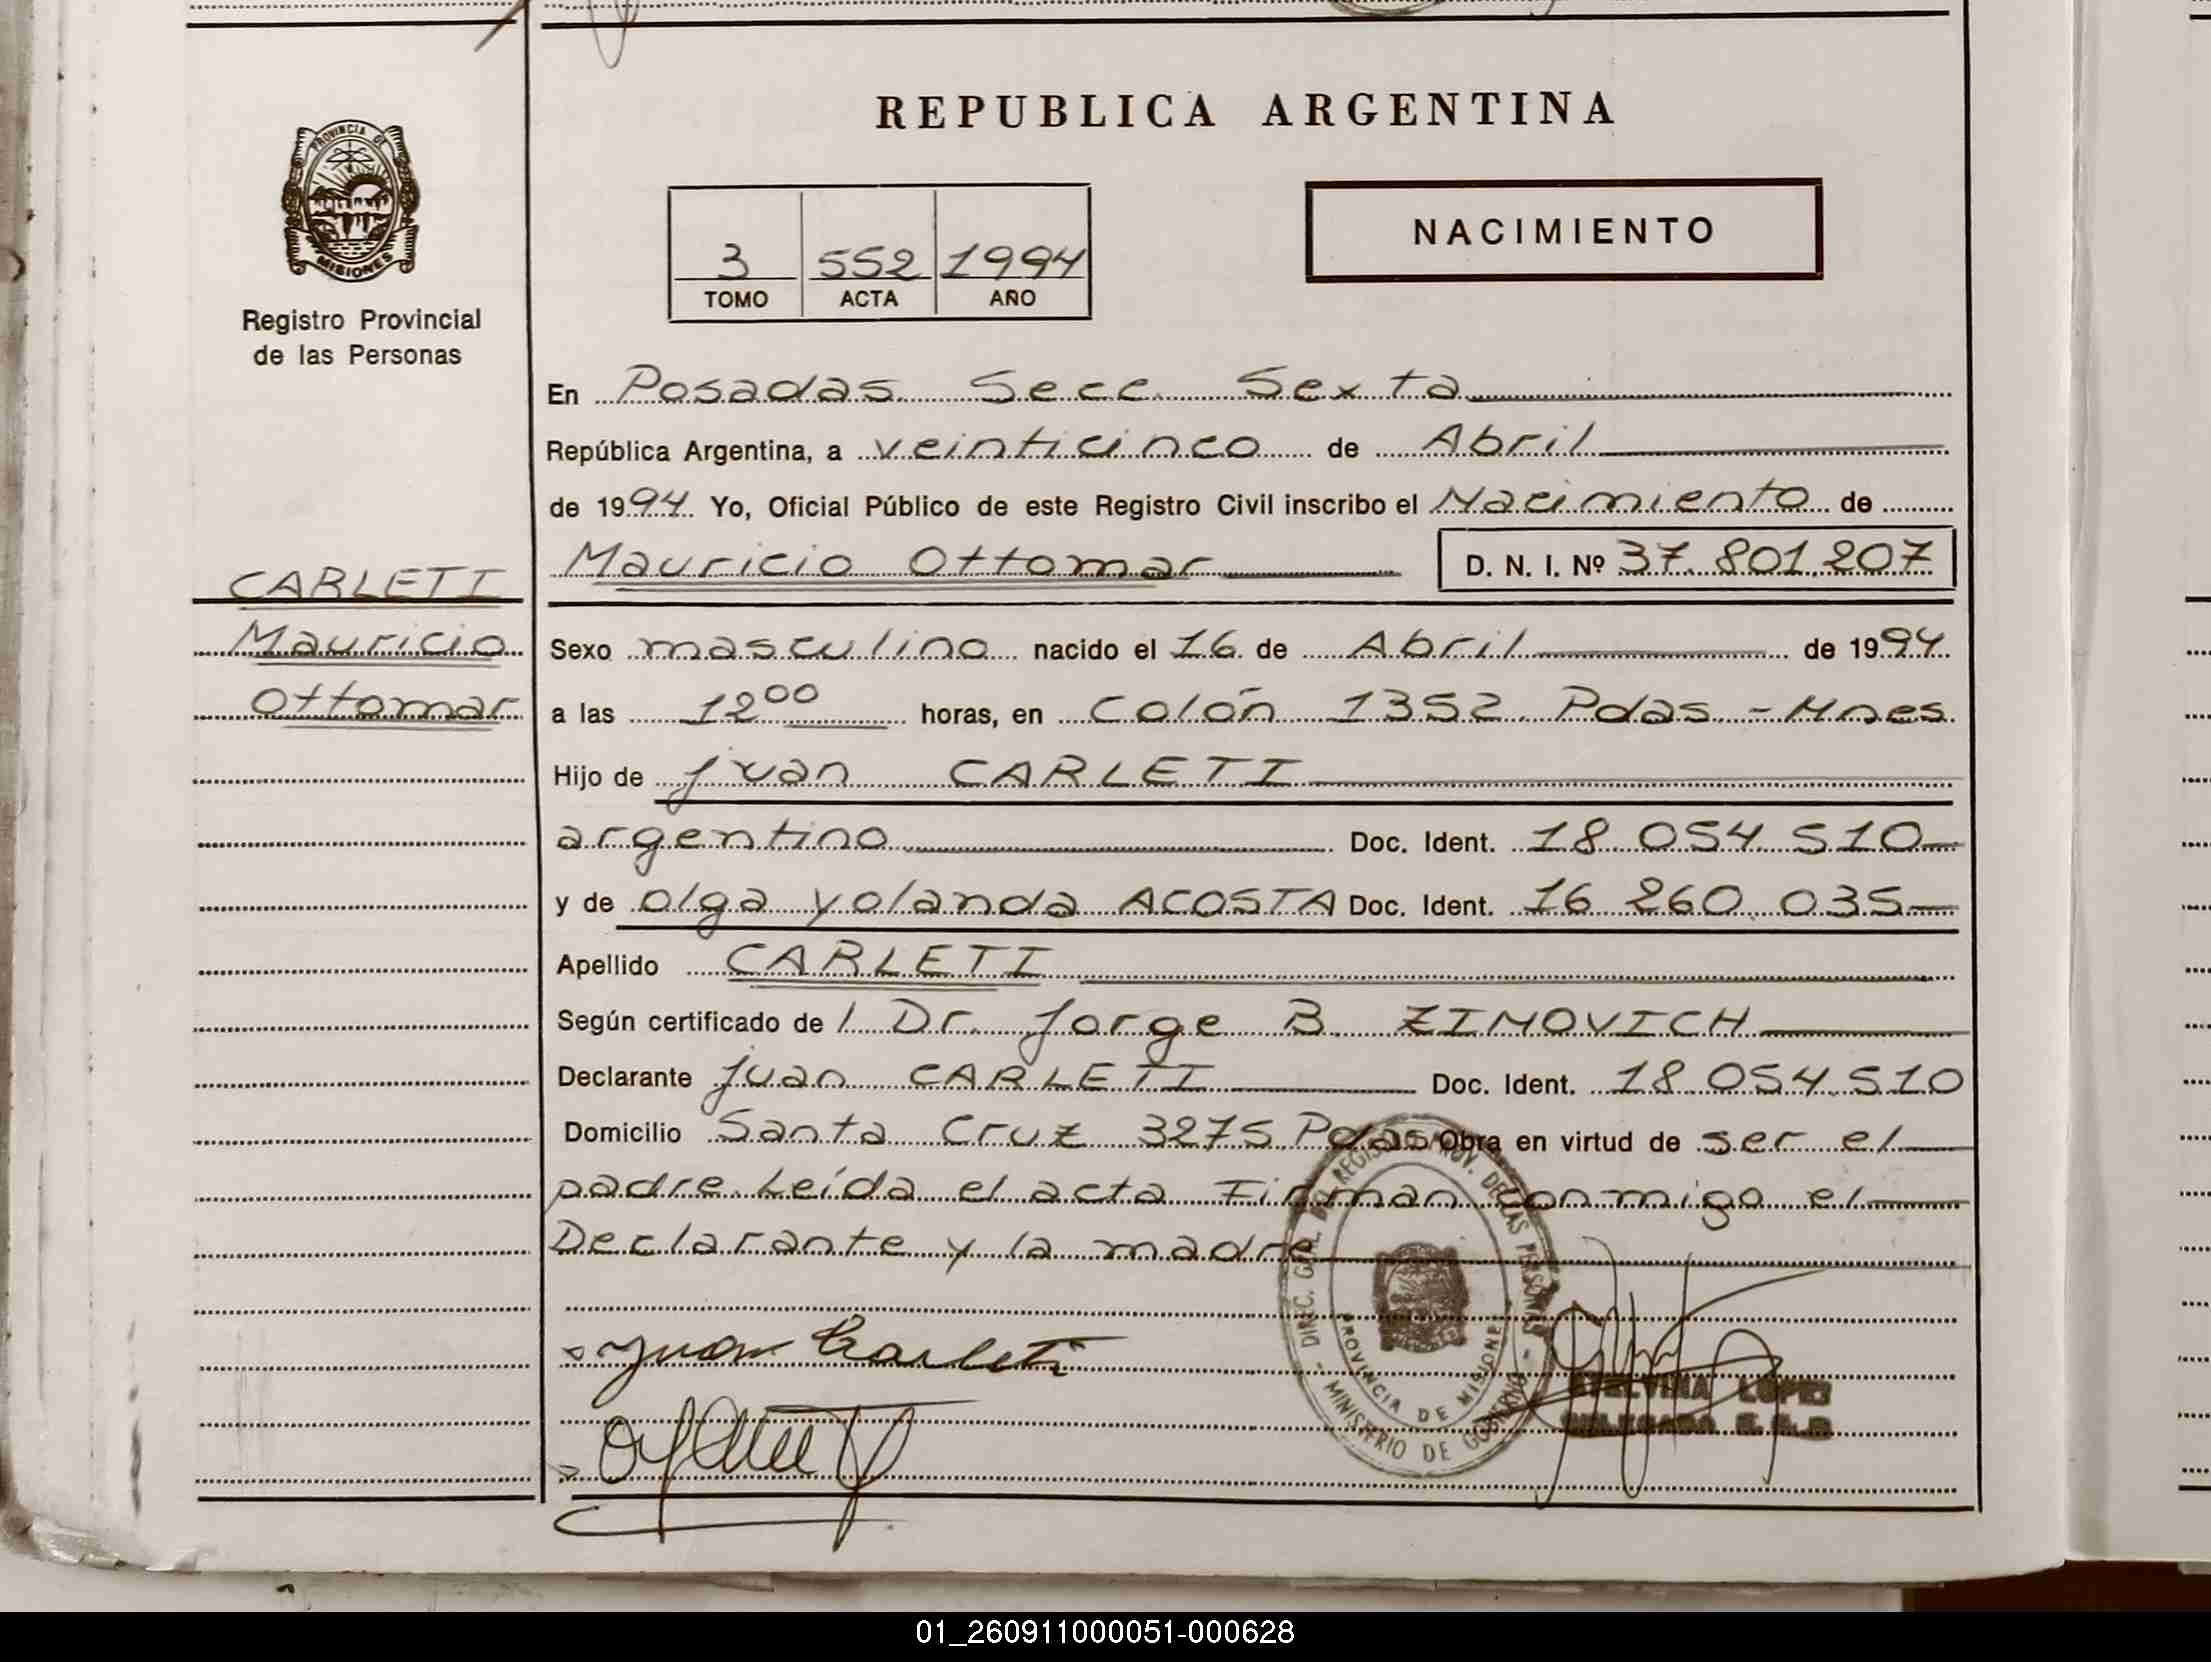 PROVINCIA DE
MISIONES
Registro Provincial
de las Personas
CARLETI
Mauricio
Ottomar
REPUBLICA ARGENTINA
3 552 1994
TOMO ACTA AÑO
NACIMIENTO
En Posadas Secc. Sexta
República Argentina, a veinticinco de Abril
de 1994. Yo, Oficial Público de este Registro Civil inscribo el Nacimiento de
Mauricio Ottomar D. N. I. Nº 37.801.207
Sexo masculino nacido el 16 de Abril de 1994
a las 12⁰⁰ horas, en Colón 1352 Pdas - Mnes
Hijo de Juan CARLETI
argentino Doc. Ident. 18 054 510
y de Olga Yolanda ACOSTA Doc. Ident. 16 260 035
Apellido CARLETI
Según certificado de / Dr. Jorge B. ZIMOVICH
Declarante Juan CARLETI Doc. Ident. 18 054 510
Domicilio Santa Cruz 3275 Pdas Obra en virtud de ser el
padre. Leída el acta Firman conmigo el
Declarante y la madre
DIREC. GRAL. DEL REGISTRO PROV. DE LAS PERSONAS
PROVINCIA DE MISIONES
MINISTERIO DE GOBIERNO
Juan Carleti
LOPEZ
DELEGADA
01_260911000051-000628